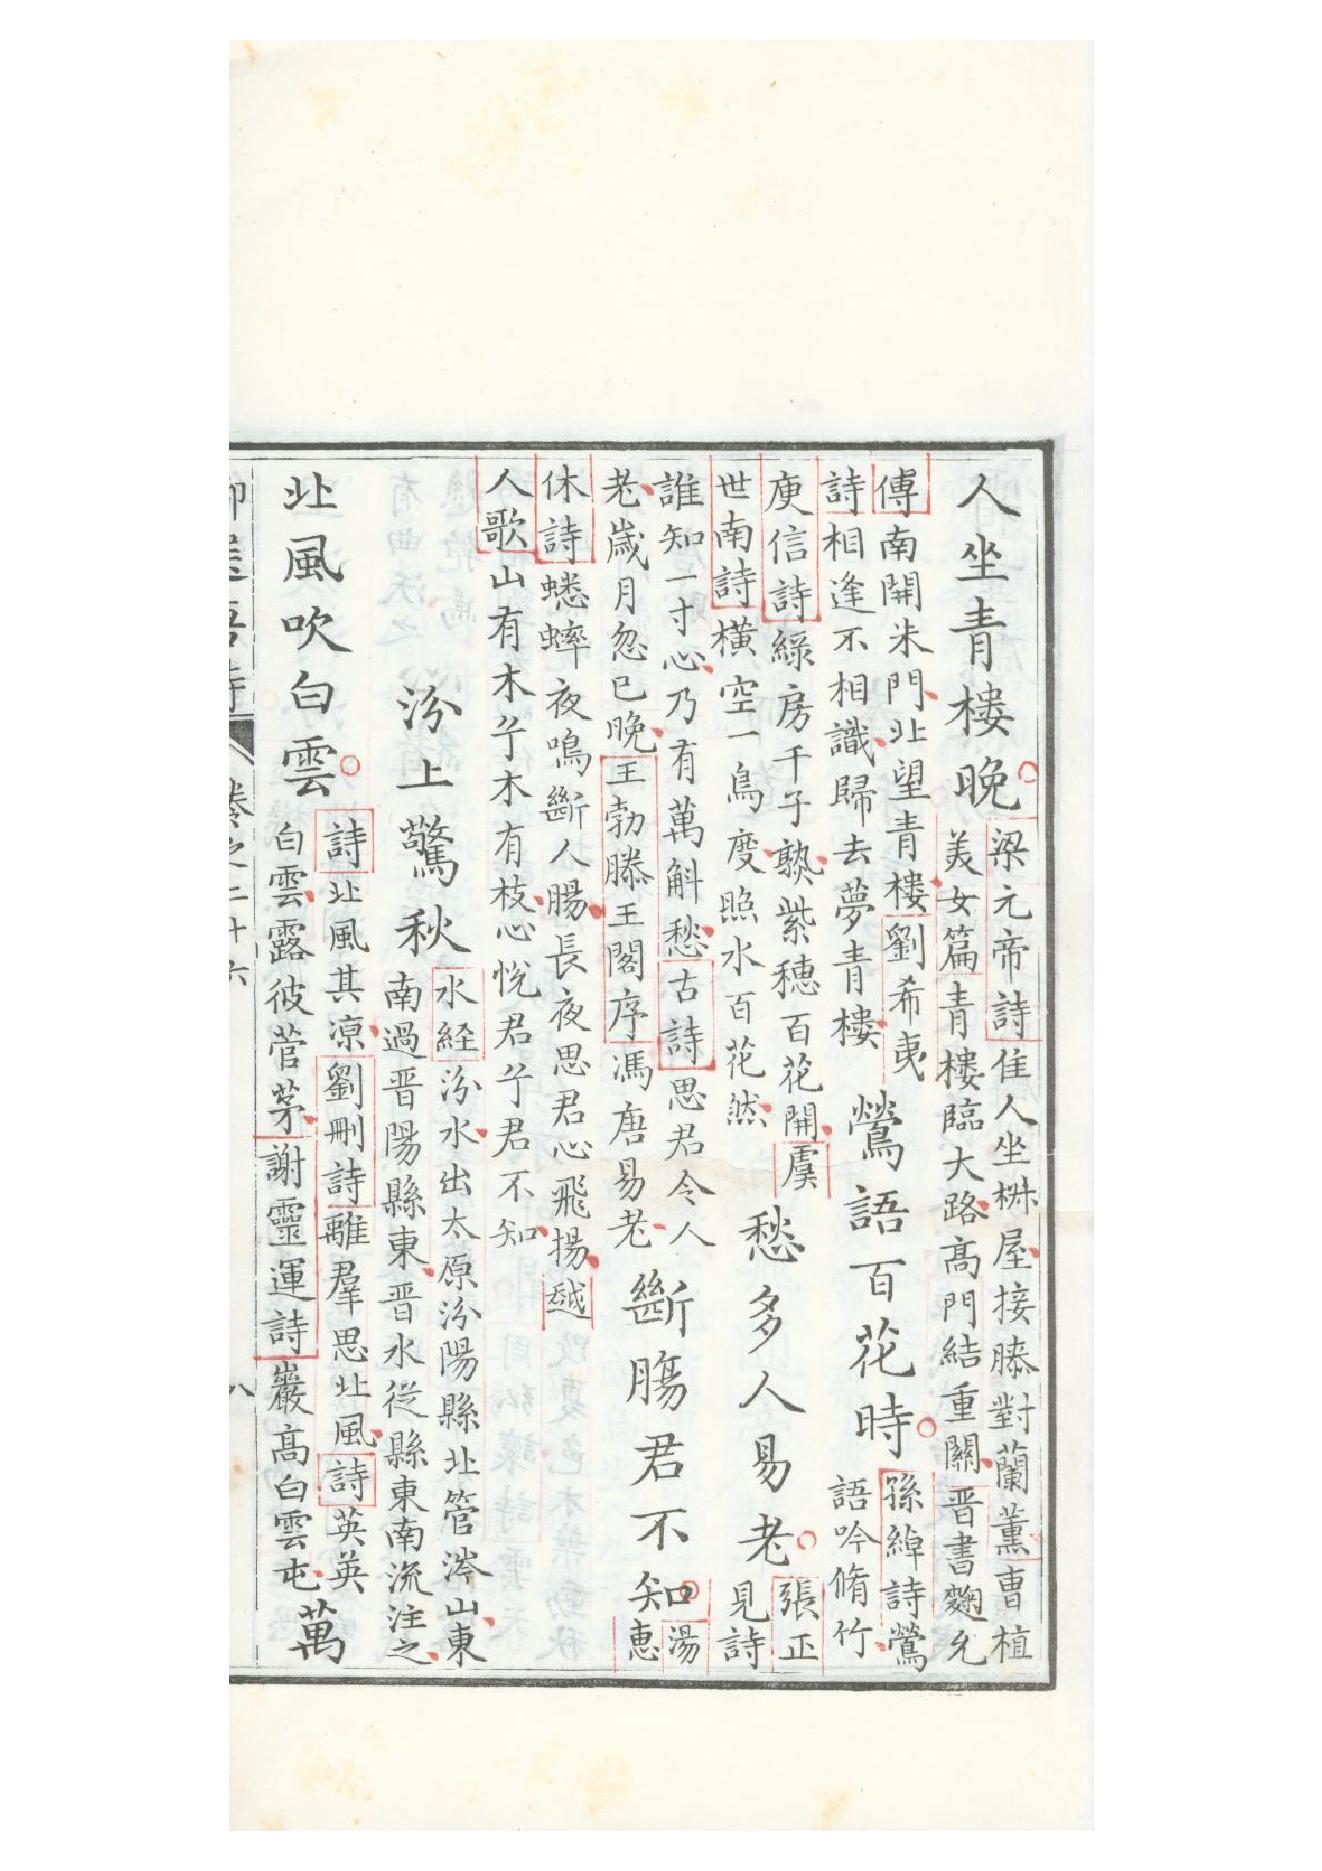 人坐青樓晚
梁元帝詩隹人坐椒屋接膝對蘭薰曹植
美女篇青樓臨大路高門結重關晋書麴允
傅南開朱門北望青樓劉希夷
詩相逢不相識歸去夢青樓
鶯語百花時
孫綽詩鶯
語吟脩竹
庾信詩綠房千子熟紫穗百花開虞
世南詩橫空一鳥度照水百花然
愁多人易老
張正
見詩
誰知一寸心乃有萬斛愁古詩思君令人
老歲月忽已晚王勃滕王閣序馮唐易老
斷腸君不知
湯
惠
休詩蟋蟀夜鳴斷人腸長夜思君心飛揚越
人歌山有木兮木有枝心悅君兮君不知
汾上驚秋
水經汾水出太原汾陽縣北管涔山東
南過晋陽縣東晋水從縣東南流注之
北風吹白雲
詩北風其凉劉刪詩離羣思北風詩英英
白雲露彼菅茅謝靈運詩巖高白雲屯
萬
卷之二十六
八